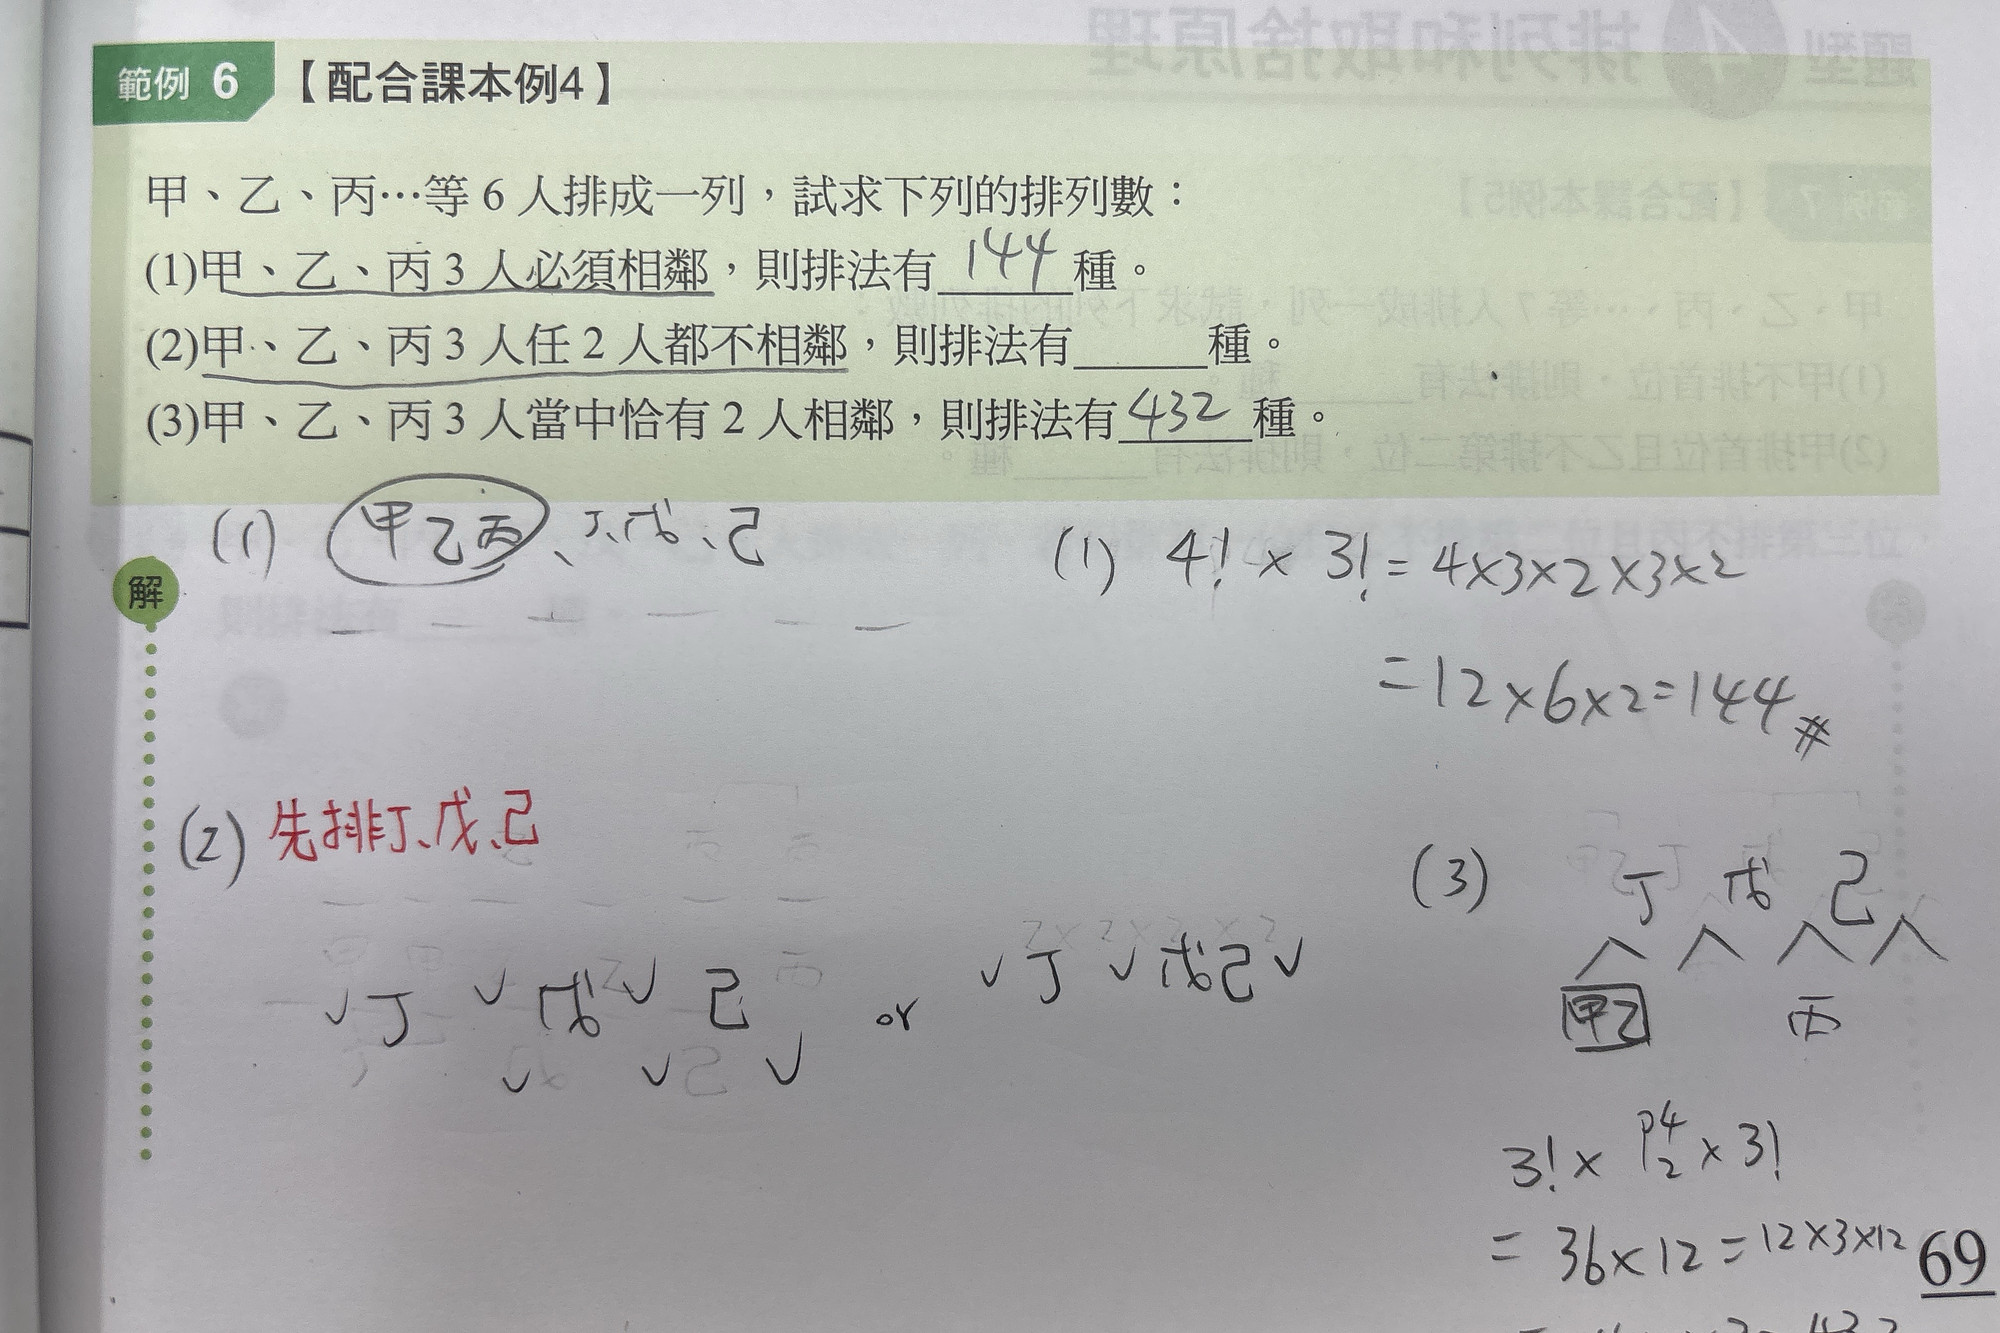 範例 6 【配合課本例4】
甲、乙、丙…等 6 人排成一列，試求下列的排列數：
(1)甲、乙、丙 3 人必須相鄰，則排法有 144 種。
(2)甲、乙、丙 3 人任 2 人都不相鄰，則排法有______種。
(3)甲、乙、丙 3 人當中恰有 2 人相鄰，則排法有 432 種。
解
(1) 甲乙丙、丁、戊、己
(1) 4! × 3! = 4×3×2×3×2
= 12×6×2 = 144 #
(2) 先排丁、戊、己
✓丁 ✓ 戊 ✓ 己 ✓ or ✓丁 ✓ 戊己 ✓
✓ ✓
(3) 丁 戊 己
甲乙 丙
3! × P⁴₂ × 3!
= 36×12 = 12×3×12
69